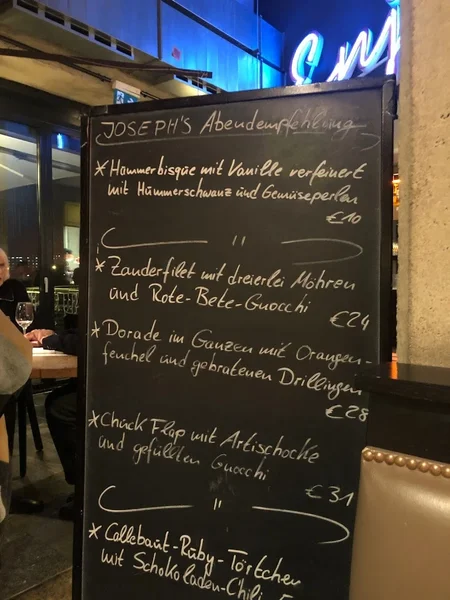 JOSEPH'S Abendempfehlung
* Hummerbisque mit Vanille verfeinert
mit Hummerschwanz und Gemüseperlen
€10
"
* Zanderfilet mit dreierlei Möhren
und Rote-Bete-Gnocchi
€24
* Dorade im Ganzen mit Orangen-
fenchel und gebratenen Drillingen
€28
* Chuck Flap mit Artischocke
und gefüllten Gnocchi
€31
"
* Callebaut-Ruby-Törtchen
mit Schokoladen-Chili-